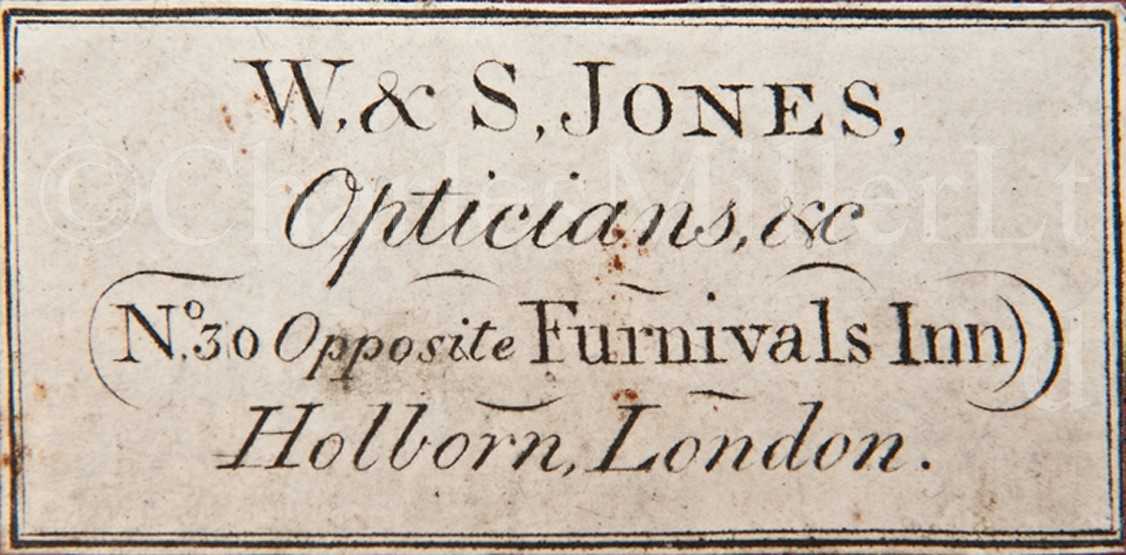 W. & S. JONES,
Opticians, &c
No. 30 Opposite Furnivals Inn
Holborn, London.
©Charles Miller Ltd